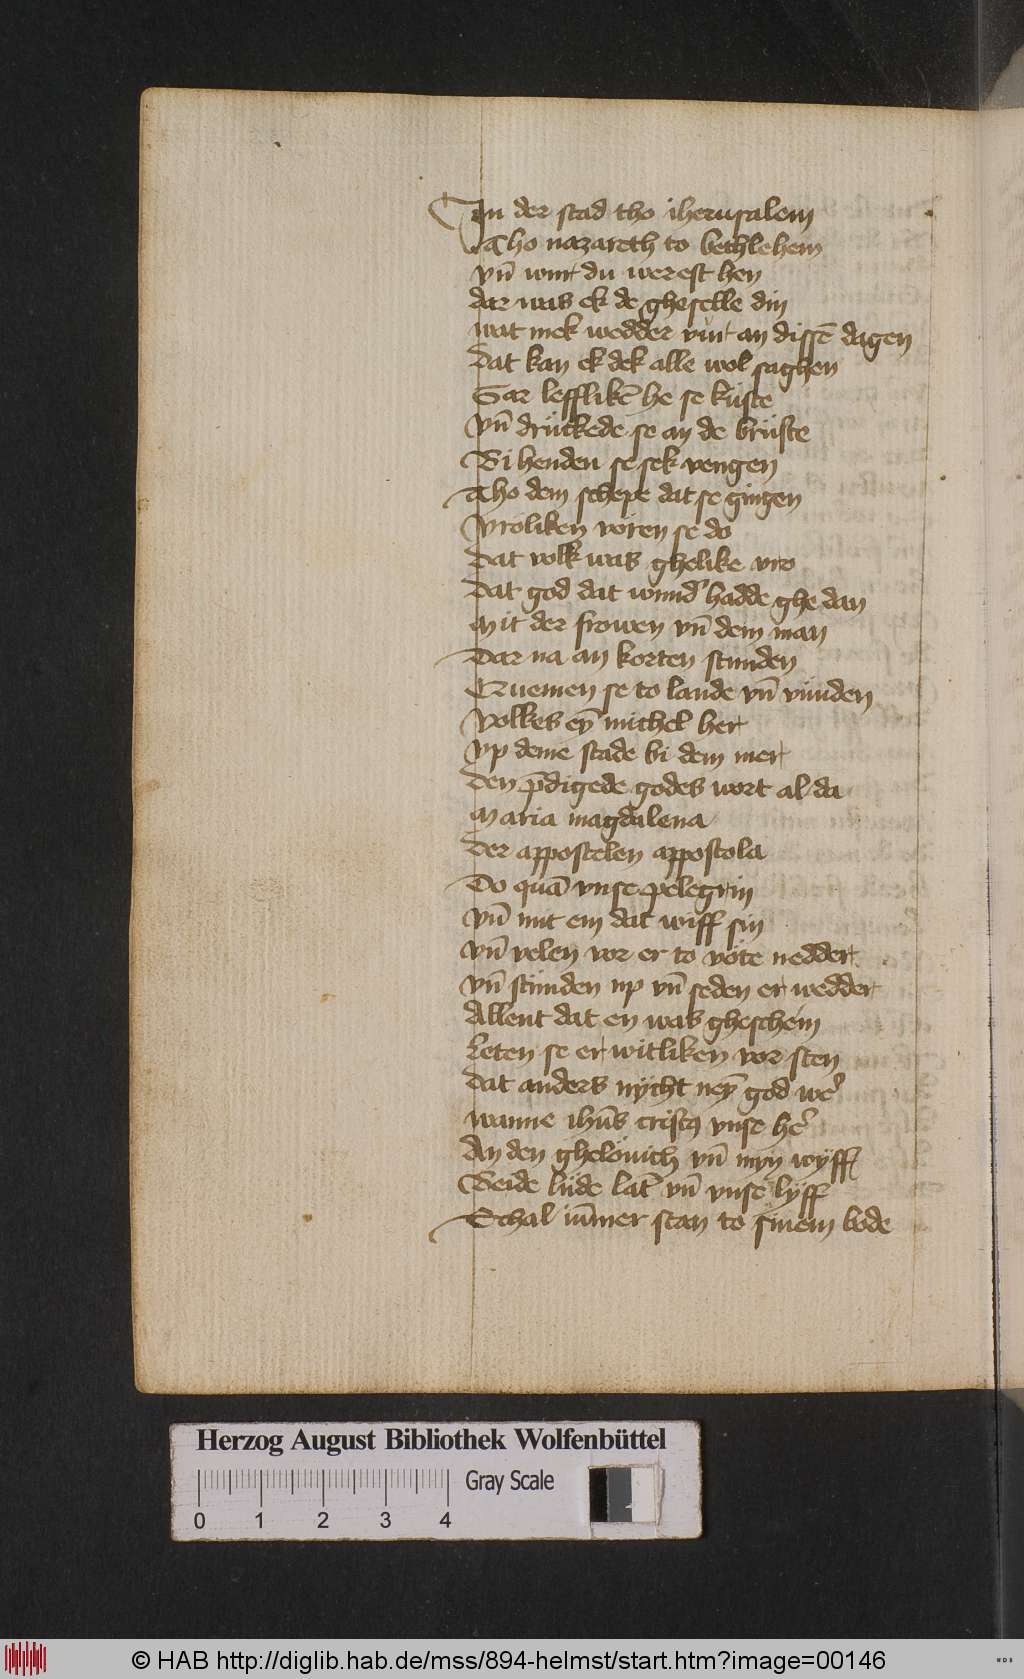 In der stad tho iherusalem
Tho nazareth to bethlehem
vn̄ wur du werest hen
dar was ek de gheselle din
wat mek wedder vůr an dissē dagen
Dat kan ek dek alle wol saghen
Gar lefflikē he se kuste
vn̄ drückede se an de brüste
Bi henden se sek vengen
Tho dem schepe dat se gingen
Vröliken vören se do
Dat volk was ghelike vro
Dat god dat wund' hadde ghe dan
Mit der frowen vn̄ dem man
Dar na an korten stunden
Quemen se to lande vn̄ vünden
Volkes eȳ michel her
vp deme stade bi dem mer
Den p̄digede godes wort al da
Maria magdalena
Der appostelen appostola
Do quā vnse pelegrin
vn̄ mit em dat wiff sin
vn̄ velen vor er to vöte nedder
vn̄ stunden up vn̄ seden er wedder
Allent dat en was gheschein
Leten se er witliken vor sten
Dat anders nycht neȳ god we'
wanne ihūs cristꝯ vnse he'
An den ghelöuich vn̄ myn wyff
Beide lüde lāt vn̄ vnse lyff
Schal iūmer stan to sinem bode
Herzog August Bibliothek Wolfenbüttel
Gray Scale
0 1 2 3 4
© HAB http://diglib.hab.de/mss/894-helmst/start.htm?image=00146